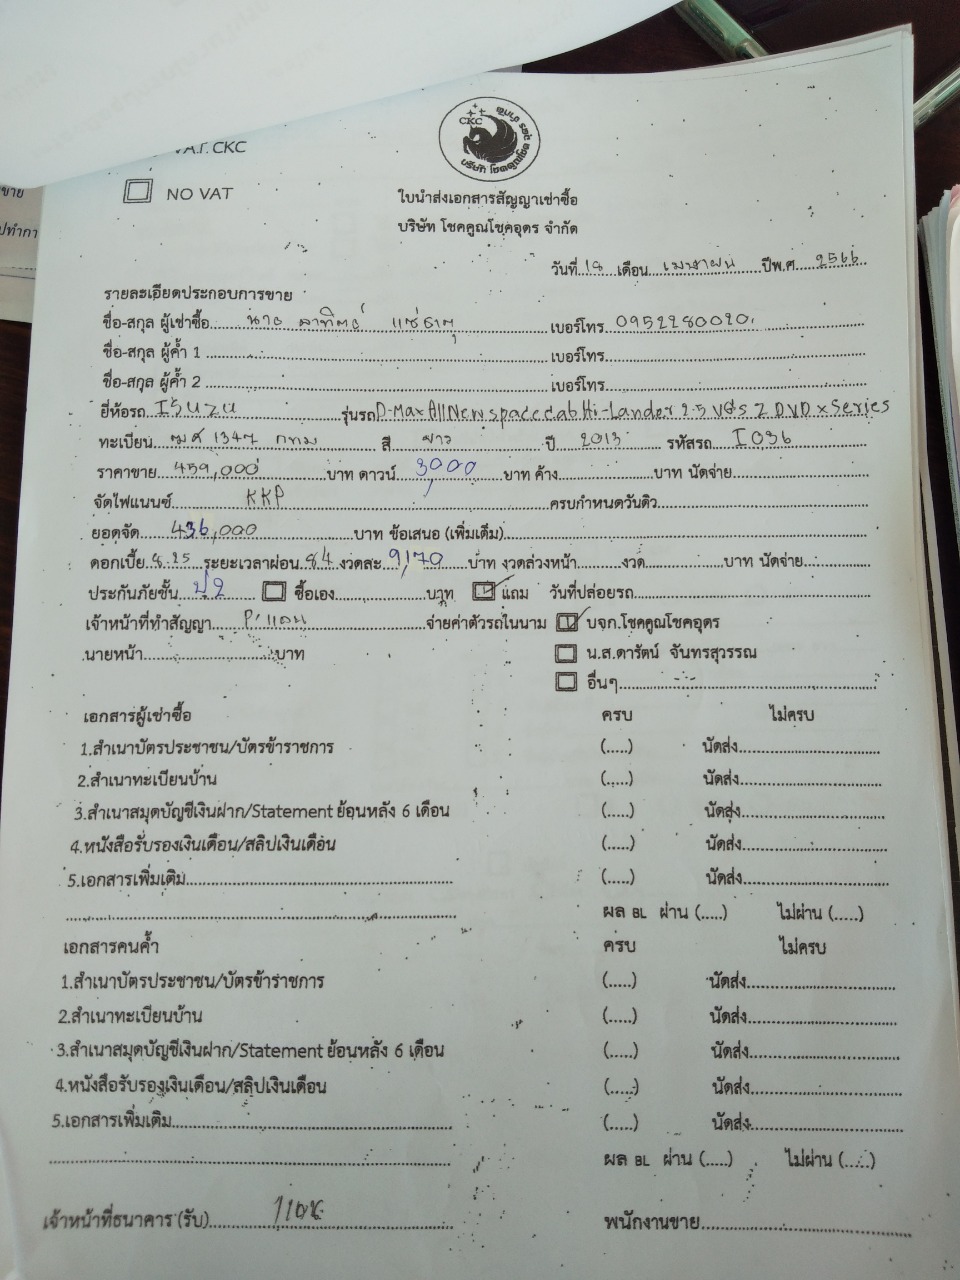 CKC
NO VAT
CKC
บริษัท โชคคูณโชคอุดร จำกัด
ใบนำส่งเอกสารสัญญาเช่าซื้อ
บริษัท โชคคูณโชคอุดร จำกัด
วันที่ 18 เดือน เมษายน ปีพ.ศ. 2566
รายละเอียดประกอบการขาย
ชื่อ-สกุล ผู้เช่าซื้อ นาย อาทิตย์ แซ่ธาตุ เบอร์โทร 0952280020
ชื่อ-สกุล ผู้ค้ำ 1 เบอร์โทร
ชื่อ-สกุล ผู้ค้ำ 2 เบอร์โทร
ยี่ห้อรถ ISUZU รุ่นรถ D-Max All New spacecab Hi-Lander 2.5 VGS Z DVD x Series
ทะเบียน 1347 กทม สี ขาว ปี 2013 รหัสรถ I036
ราคาขาย 459,000 บาท ดาวน์ 3,000 บาท ค้าง บาท นัดจ่าย
จัดไฟแนนซ์ KKP ครบกำหนดวันดิว
ยอดจัด 436,000 บาท ข้อเสนอ (เพิ่มเติม)
ดอกเบี้ย 8.25 ระยะเวลาผ่อน 84 งวดละ 9,170 บาท งวดล่วงหน้า งวด บาท นัดจ่าย
ประกันภัยชั้น ป2 ซื้อเอง บาท แถม วันที่ปล่อยรถ
เจ้าหน้าที่ทำสัญญา จ่ายค่าตัวรถในนาม บจก.โชคคูณโชคอุดร
นายหน้า บาท น.ส.ดารัตน์ จันทรสุวรรณ
อื่นๆ
เอกสารผู้เช่าซื้อ ครบ ไม่ครบ
1.สำเนาบัตรประชาชน/บัตรข้าราชการ (.....) นัดส่ง
2.สำเนาทะเบียนบ้าน (.....) นัดส่ง
3.สำเนาสมุดบัญชีเงินฝาก/Statement ย้อนหลัง 6 เดือน (.....) นัดส่ง
4.หนังสือรับรองเงินเดือน/สลิปเงินเดือน (.....) นัดส่ง
5.เอกสารเพิ่มเติม (.....) นัดส่ง
ผล BL ผ่าน (.....) ไม่ผ่าน (.....)
เอกสารคนค้ำ ครบ ไม่ครบ
1.สำเนาบัตรประชาชน/บัตรข้าราชการ (.....) นัดส่ง
2.สำเนาทะเบียนบ้าน (.....) นัดส่ง
3.สำเนาสมุดบัญชีเงินฝาก/Statement ย้อนหลัง 6 เดือน (.....) นัดส่ง
4.หนังสือรับรองเงินเดือน/สลิปเงินเดือน (.....) นัดส่ง
5.เอกสารเพิ่มเติม (.....) นัดส่ง
ผล BL ผ่าน (.....) ไม่ผ่าน (.....)
เจ้าหน้าที่ธนาคาร (รับ) พนักงานขาย